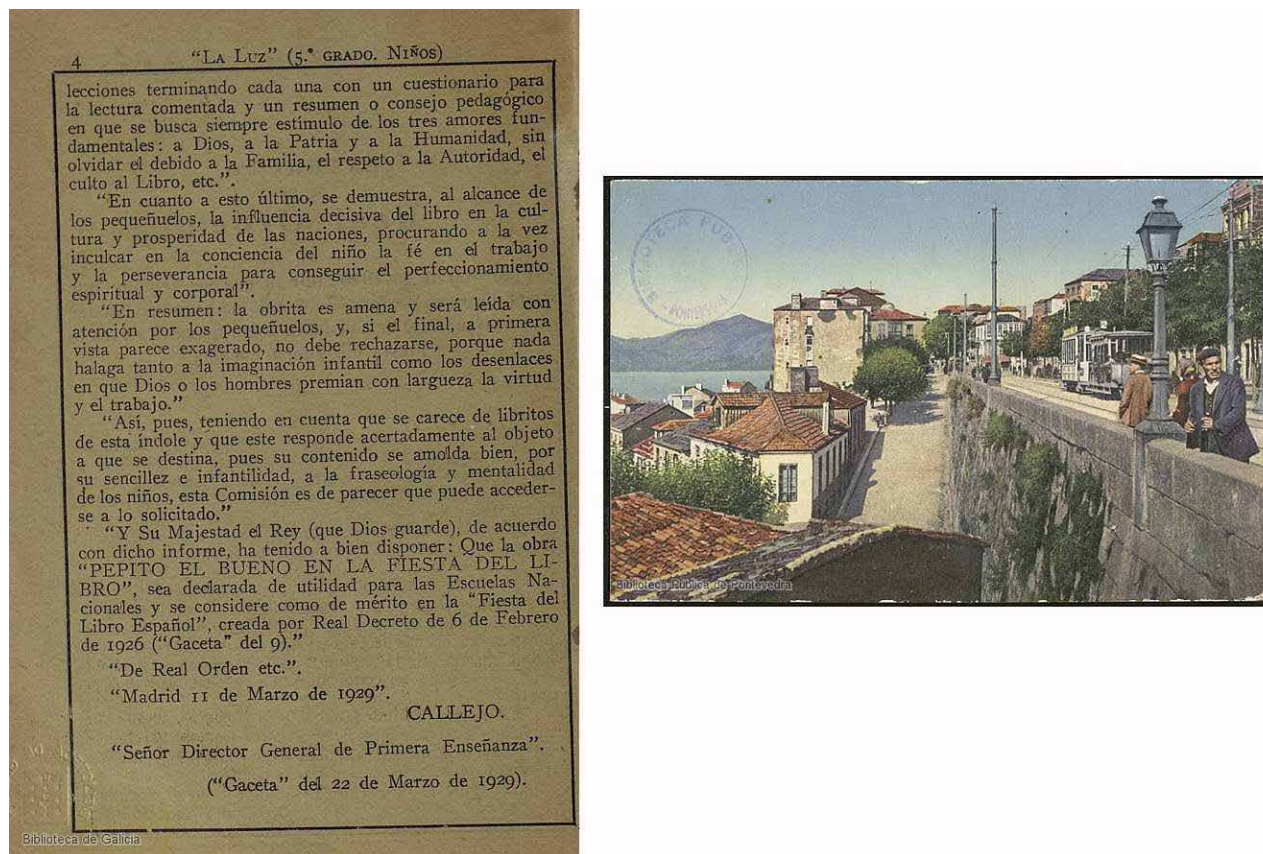 4 "LA LUZ" (5.º GRADO. NIÑOS)
lecciones terminando cada una con un cuestionario para
la lectura comentada y un resumen o consejo pedagógico
en que se busca siempre estímulo de los tres amores fun-
damentales: a Dios, a la Patria y a la Humanidad, sin
olvidar el debido a la Familia, el respeto a la Autoridad, el
culto al Libro, etc.".
"En cuanto a esto último, se demuestra, al alcance de
los pequeñuelos, la influencia decisiva del libro en la cul-
tura y prosperidad de las naciones, procurando a la vez
inculcar en la conciencia del niño la fé en el trabajo
y la perseverancia para conseguir el perfeccionamiento
espiritual y corporal".
"En resumen: la obrita es amena y será leída con
atención por los pequeñuelos, y, si el final, a primera
vista parece exagerado, no debe rechazarse, porque nada
halaga tanto a la imaginación infantil como los desenlaces
en que Dios o los hombres premian con largueza la virtud
y el trabajo."
"Así, pues, teniendo en cuenta que se carece de libritos
de esta índole y que este responde acertadamente al objeto
a que se destina, pues su contenido se amolda bien, por
su sencillez e infantilidad, a la fraseología y mentalidad
de los niños, esta Comisión es de parecer que puede acceder-
se a lo solicitado."
"Y Su Majestad el Rey (que Dios guarde), de acuerdo
con dicho informe, ha tenido a bien disponer: Que la obra
"PEPITO EL BUENO EN LA FIESTA DEL LI-
BRO", sea declarada de utilidad para las Escuelas Na-
cionales y se considere como de mérito en la "Fiesta del
Libro Español", creada por Real Decreto de 6 de Febrero
de 1926 ("Gaceta" del 9)."
"De Real Orden etc.".
"Madrid 11 de Marzo de 1929".
CALLEJO.
"Señor Director General de Primera Enseñanza".
("Gaceta" del 22 de Marzo de 1929).
Biblioteca de Galicia
Biblioteca Pública de Pontevedra